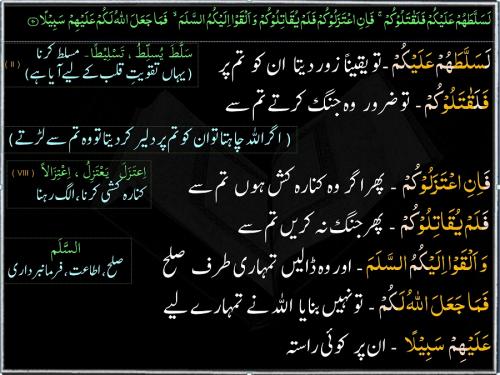 لَسَلَّطَهُمْ عَلَيْكُمْ فَلَقٰتَلُوْكُمْ ۚ فَاِنِ اعْتَزَلُوْكُمْ فَلَمْ يُقَاتِلُوْكُمْ وَاَلْقَوْا اِلَيْكُمُ السَّلَمَ ۙ فَمَا جَعَلَ اللّٰهُ لَكُمْ عَلَيْهِمْ سَبِيْلًا
لَسَلَّطَهُمْ عَلَيْكُمْ - تو یقیناً زور دیتا ان کو تم پر
سَلَّطَ يُسَلِّطُ ، تَسْلِيْطًا ، مسلط کرنا (II)
(یہاں تقویتِ قلب کے لیے آیا ہے)
فَلَقٰتَلُوْكُمْ - تو ضرور وہ جنگ کرتے تم سے
(اگر اللہ چاہتا تو ان کو تم پر دلیر کر دیتا تو وہ تم سے لڑتے)
فَاِنِ اعْتَزَلُوْكُمْ - پھر اگر وہ کنارہ کش ہوں تم سے
اِعْتَزَلَ يَعْتَزِلُ ، اِعْتِزَالاً (VIII)
کنارہ کشی کرنا، الگ رہنا
فَلَمْ يُقَاتِلُوْكُمْ - پھر جنگ نہ کریں تم سے
وَاَلْقَوْا اِلَيْكُمُ السَّلَمَ - اور وہ ڈالیں تمہاری طرف صلح
السَّلَم
صلح، اطاعت، فرمانبرداری
فَمَا جَعَلَ اللّٰهُ لَكُمْ - تو نہیں بنایا اللہ نے تمہارے لیے
عَلَيْهِمْ سَبِيْلًا - ان پر کوئی راستہ